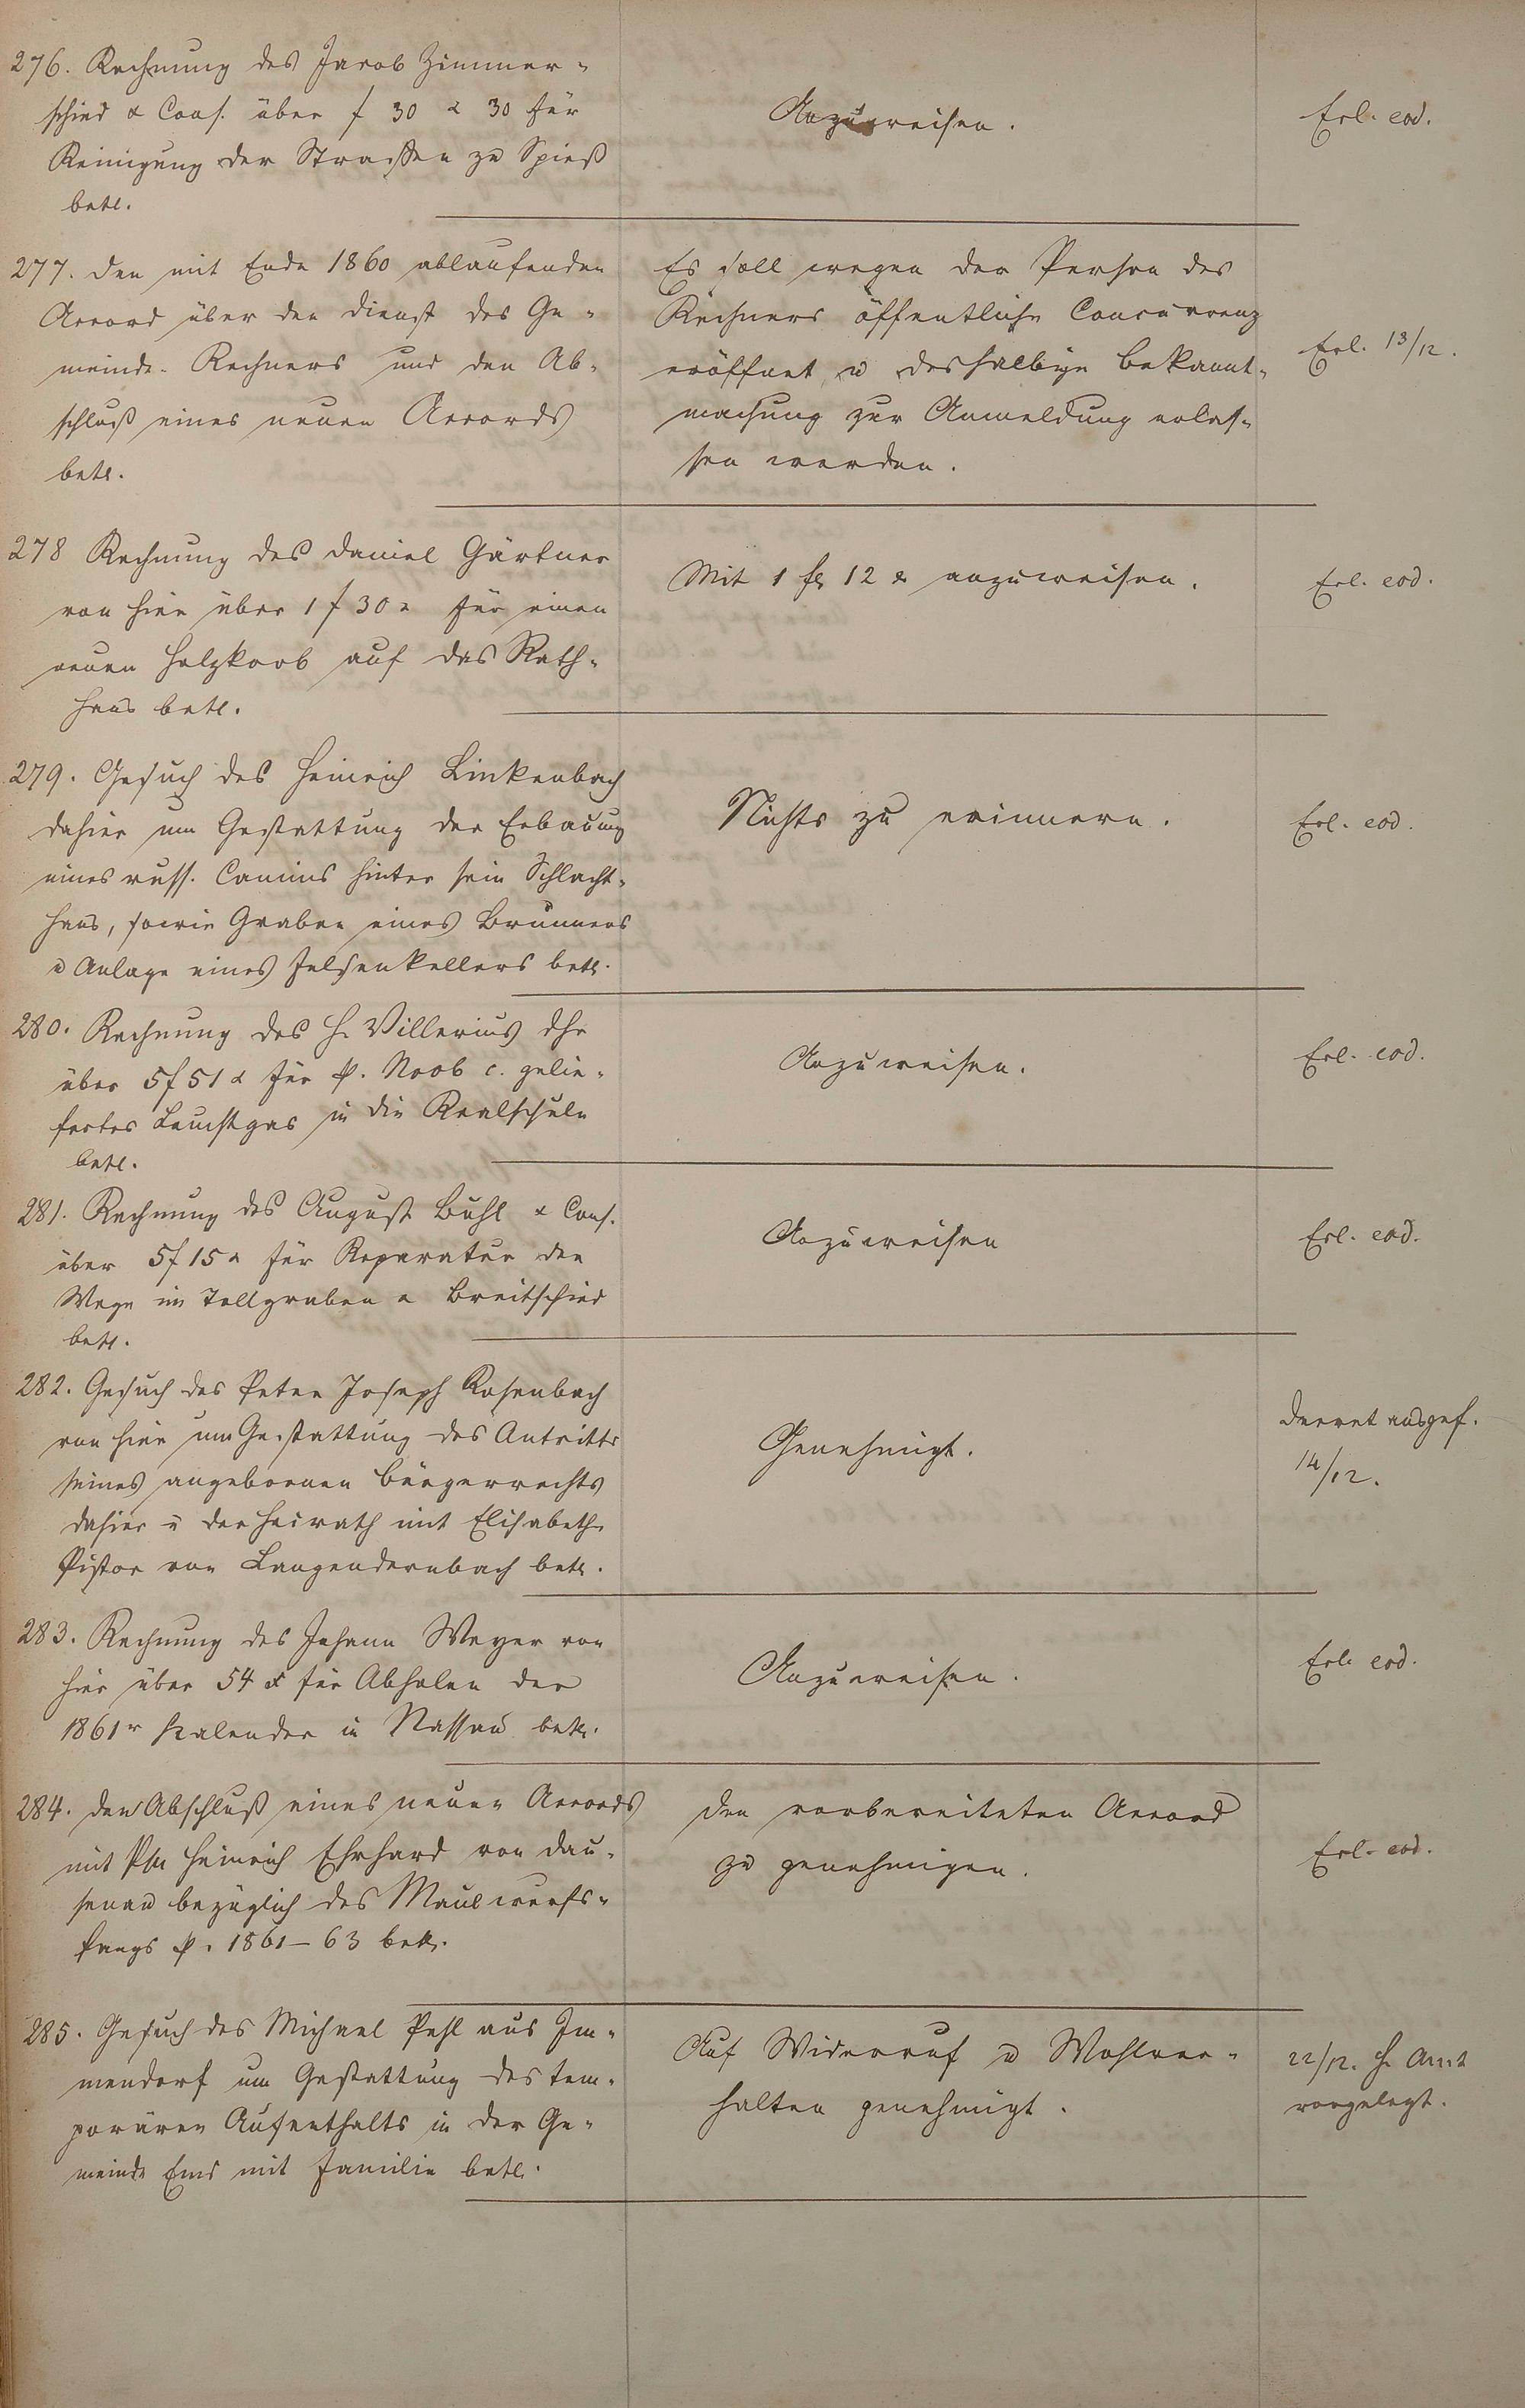 276. Rechnung des Jacob Zimmer-
schied & Cons. über f 30 x 30 für
Reinigung der Strassen zu Spieß
betr.
Anzuweisen.
Erl. eod.
277. Den mit Ende 1860 ablaufenden
Accord über den Dienst des Ge-
meinde-Rechners und den Ab-
schluß eines neuen Accords
betr.
Es soll wegen der Person des
Rechners öffentliche Concurrenz
eröffnet u deshalbige Bekannt-
machung zur Anmeldung erlas-
sen werden.
Erl. 13/12.
278 Rechnung des Daniel Gärtner
von hier über 1 f 30 x für einen
neuen Holzkorb auf das Rath-
haus betr.
Mit 1 fl 12 x anzuweisen.
Erl. eod.
279. Gesuch des Heinrich Linkenbach
dahier um Gestattung der Erbauung
eines russ. Camins hinter sein Schlacht-
haus, sowie Graben eines Brunnens
u Anlage eines Felsenkellers betr.
Nichts zu erinnern.
Erl. eod.
280. Rechnung des H. Villerius dhr
über 5 f 51 x für p. Novb c. gelie-
fertes Leuchtgas in die Realschule
betr.
Anzuweisen.
Erl. eod.
281. Rechnung des August Buhl & Cons.
über 5 f 15 x für Reparatur der
Wege im Tollgraben & Breitschied
betr.
Anzuweisen
Erl. eod.
282. Gesuch des Peter Joseph Rosenbach
von hier um Gestattung des Antritts
seines angebornen Bürgerrechts
dahier u der Heirath mit Elisabeth
Pistor von Langendernbach betr.
Genehmigt.
Decret ausgef.
14/12.
283. Rechnung des Johann Weyer von
hier über 54 x für Abholen der
1861r Kalender in Nassau betr.
Anzuweisen.
Erl. eod.
284. Den Abschluß eines neuen Accords
mit Heinrich Ehrhard von Dau-
senau bezüglich des Maulwurfs-
fangs p. 1861-63 betr.
Den vorbereiteten Accord
zu genehmigen.
Erl. eod.
285. Gesuch des Michael Pehl aus Im-
mendorf um Gestattung des tem-
porären Aufenthalts in der Ge-
meinde Ems mit Familie betr.
Auf Widerruf u Wohlver-
halten genehmigt.
22/12. H. Amt
vorgelegt.